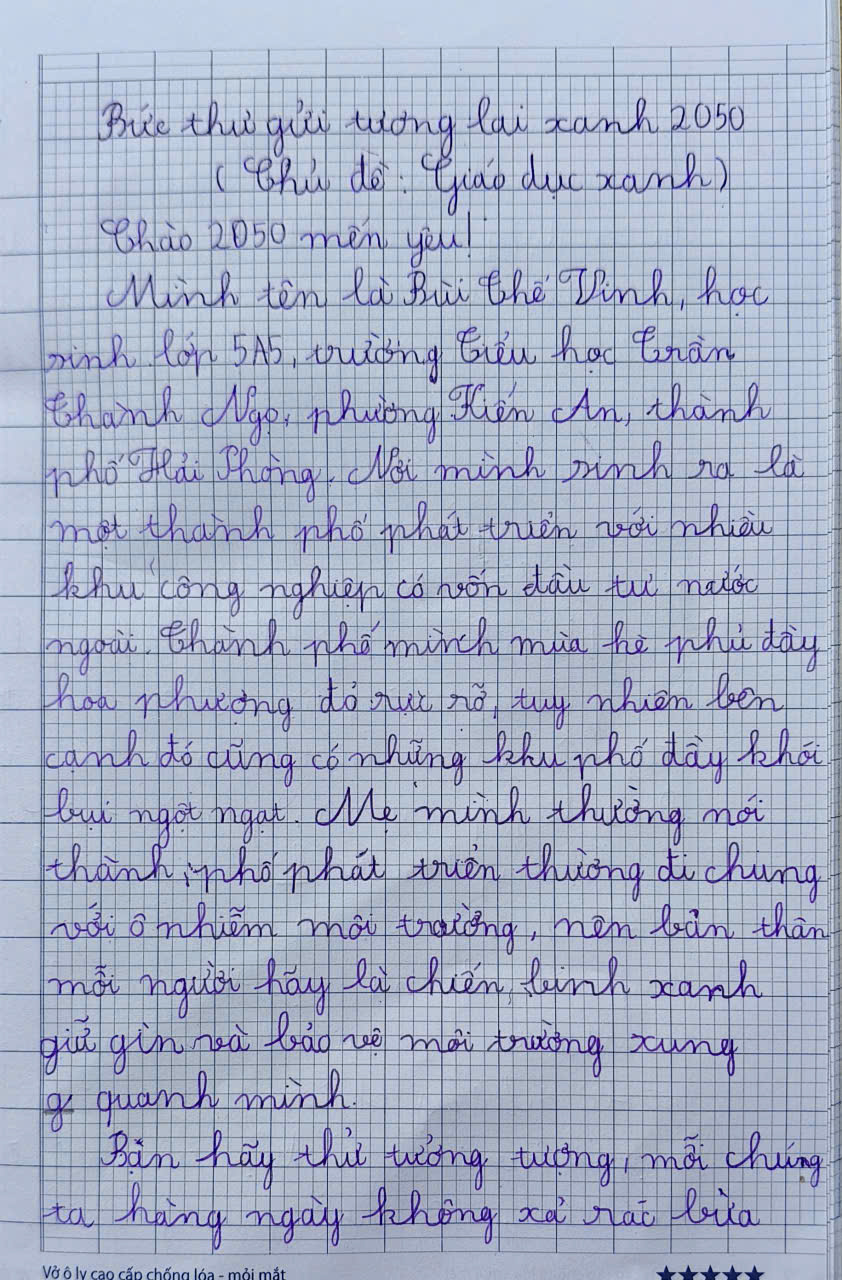 Bức thư gửi tương lai xanh 2050
(Chủ đề: Giáo dục xanh)
Chào 2050 mến yêu!
Mình tên là Bùi Thế Vinh, học
sinh lớp 5A5, trường Tiểu học Trần
Thành Ngọ, phường Kiến An, thành
phố Hải Phòng. Nơi mình sinh ra là
một thành phố phát triển với nhiều
khu công nghiệp có vốn đầu tư nước
ngoài. Thành phố mình mùa hè phủ đầy
hoa phượng đỏ rực rỡ, tuy nhiên bên
cạnh đó cũng có những khu phố đầy khói
bụi ngột ngạt. Mẹ mình thường nói
thành phố phát triển thường đi chung
với ô nhiễm môi trường, nên bản thân
mỗi người hãy là chiến binh xanh
giữ gìn và bảo vệ môi trường xung
g quanh mình.
Bạn hãy thử tưởng tượng, mỗi chúng
ta hàng ngày không xả rác bừa
Vở ô ly cao cấp chống lóa - mỏi mắt